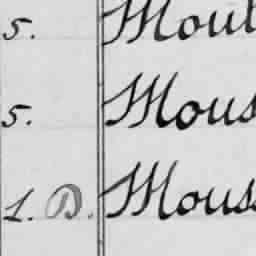 5. Moul
5. Mous
1. D. Mous